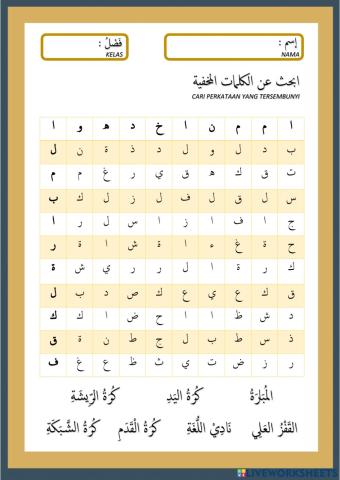 إسم :
NAMA
فَصْلُ :
KELAS
ابحث عن الكلمات المخفية
CARI PERKATAAN YANG TERSEMBUNYI
ا م م ن ا خ د ه و ا
ب د ل و ل د ذ ة ن ل
ت ق ك ه ق ي ر غ م م
س ل ق ل ف ل ز ل ك ب
ج ا ف ا ز ا س ل ر ا
ح ة غ ء ا ة ش ا ة ر
ك ر ة ا ل ر ر ي ش ة
ق ك ع ي ع ك ص د ب ل
د ش ظ ا ا ح ض ا ك ك
ذ س ط ب ل ج ط ن ة ق
ر ز ض ت ي ث ظ ع غ ف
المُبَارَةُ كُرَةُ اليَدِ كُرَةُ الرِيْشَةِ
القَفْزُ العَالِي نَادِيْ اللُّغَةِ كُرَةُ القَدَمِ كُرَةُ الشَّبَكَةِ
LIVEWORKSHEETS